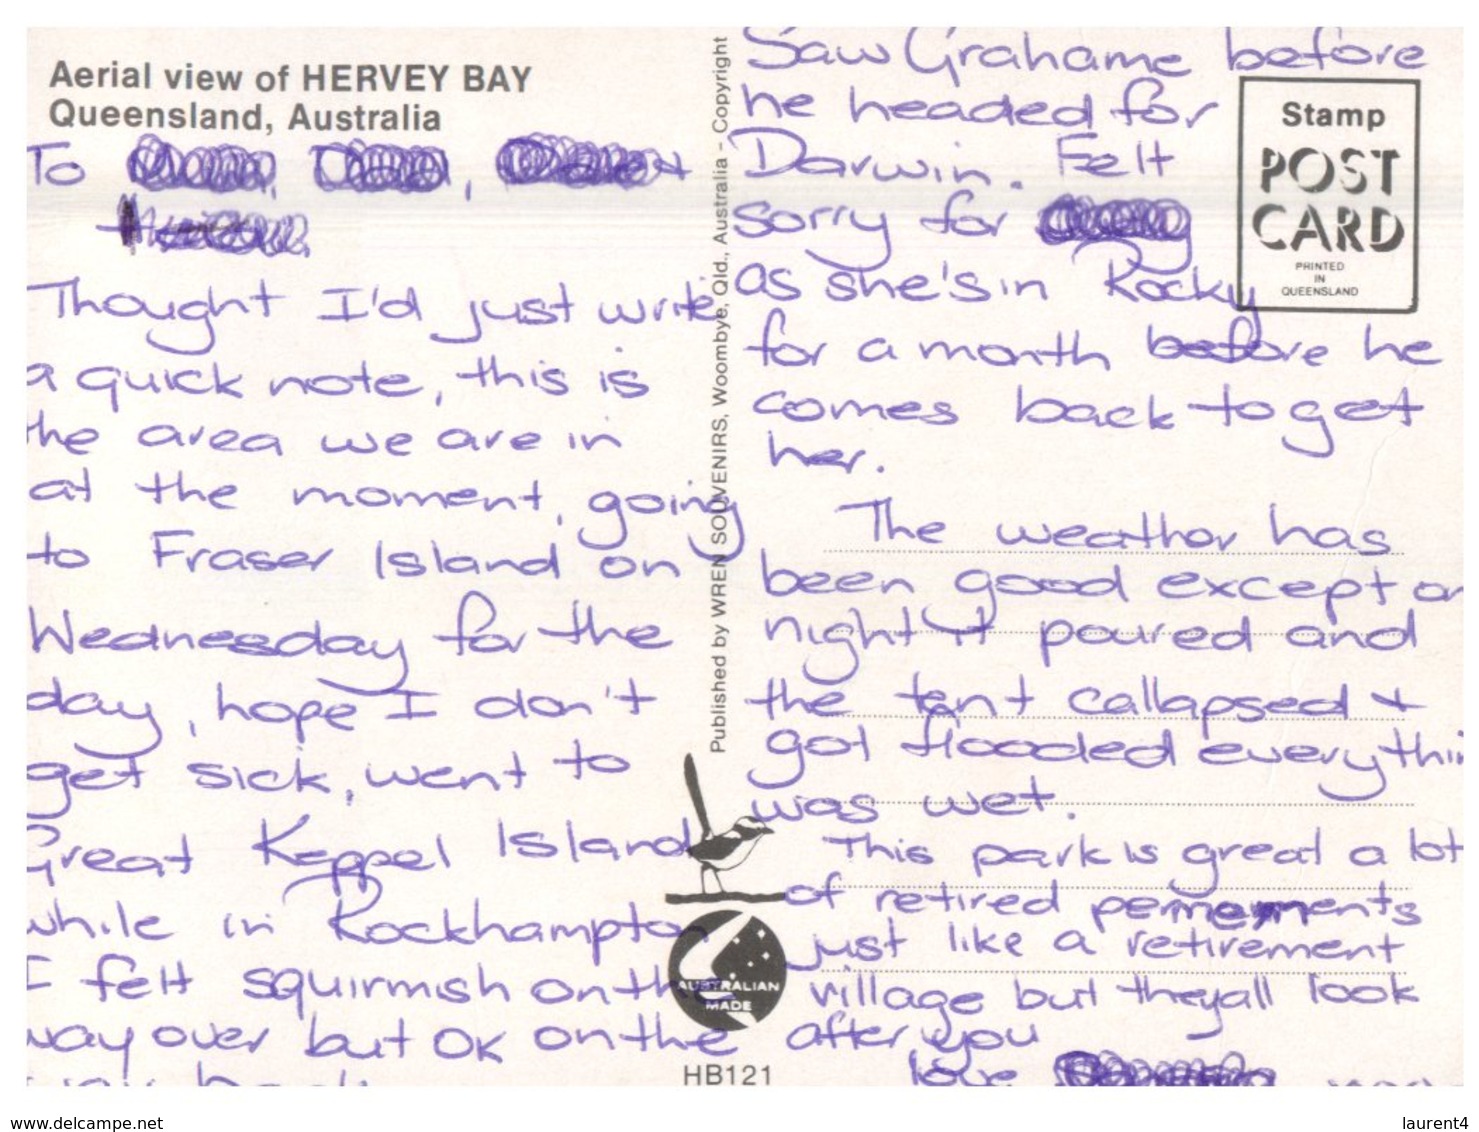 Aerial view of HERVEY BAY
Queensland, Australia
To
Thought I'd just write
a quick note, this is
the area we are in
at the moment, going
to Fraser Island on
Wednesday for the
day, hope I don't
get sick, went to
Great Keppel Island
while in Rockhampton
I felt squirmish on the
way over but OK on the
way back
Published by WREN SOUVENIRS, Woombye, Qld., Australia - Copyright
AUSTRALIAN
MADE
HB121
Saw Grahame before
he headed for
Darwin. Felt
sorry for
as she's in Rocky
for a month before he
comes back to get
her.
The weathor has
been good except on
night it poured and
the tent callapsed +
got flooded everythin
was wet.
This park is great a lot
of retired permements
just like a retirement
village but they all look
after you
love
Stamp
POST
CARD
PRINTED
IN
QUEENSLAND
www.delcampe.net
laurent4